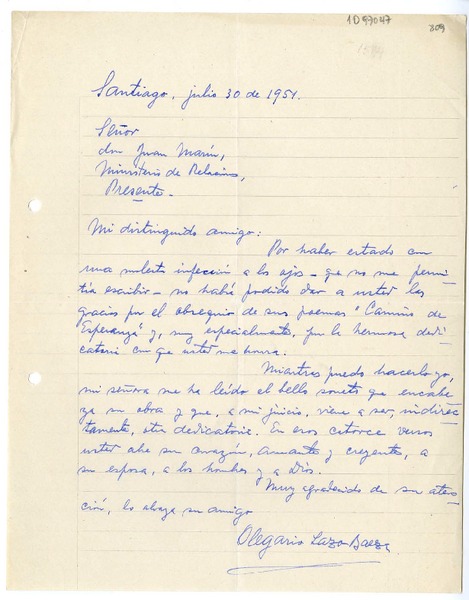 1D97047
809
Santiago, julio 30 de 1951.
Señor
don Juan Marín,
Ministerio de Relacions,
Presente.
Mi distinguido amigo:
Por haber estado con
una molesta infección a los ojos - que no me permi-
tía escribir - no había podido dar a usted las
gracias por el obsequio de sus poemas "Camino de
Esperanza" y, muy especialmente, por la hermosa dedi-
catoria con que usted me honra.
Mientras puedo hacerlo yo,
mi señora me ha leído el bello soneto que encabe-
za su obra y que, a mi juicio, viene a ser, indirec-
tamente, otra dedicatoria. En esos catorce versos
usted abre su corazón, amante y creyente, a
su esposa, a los hombres y a Dios.
Muy agradecido de su aten-
ción, lo abraza su amigo
Olegario Lazo Baeza